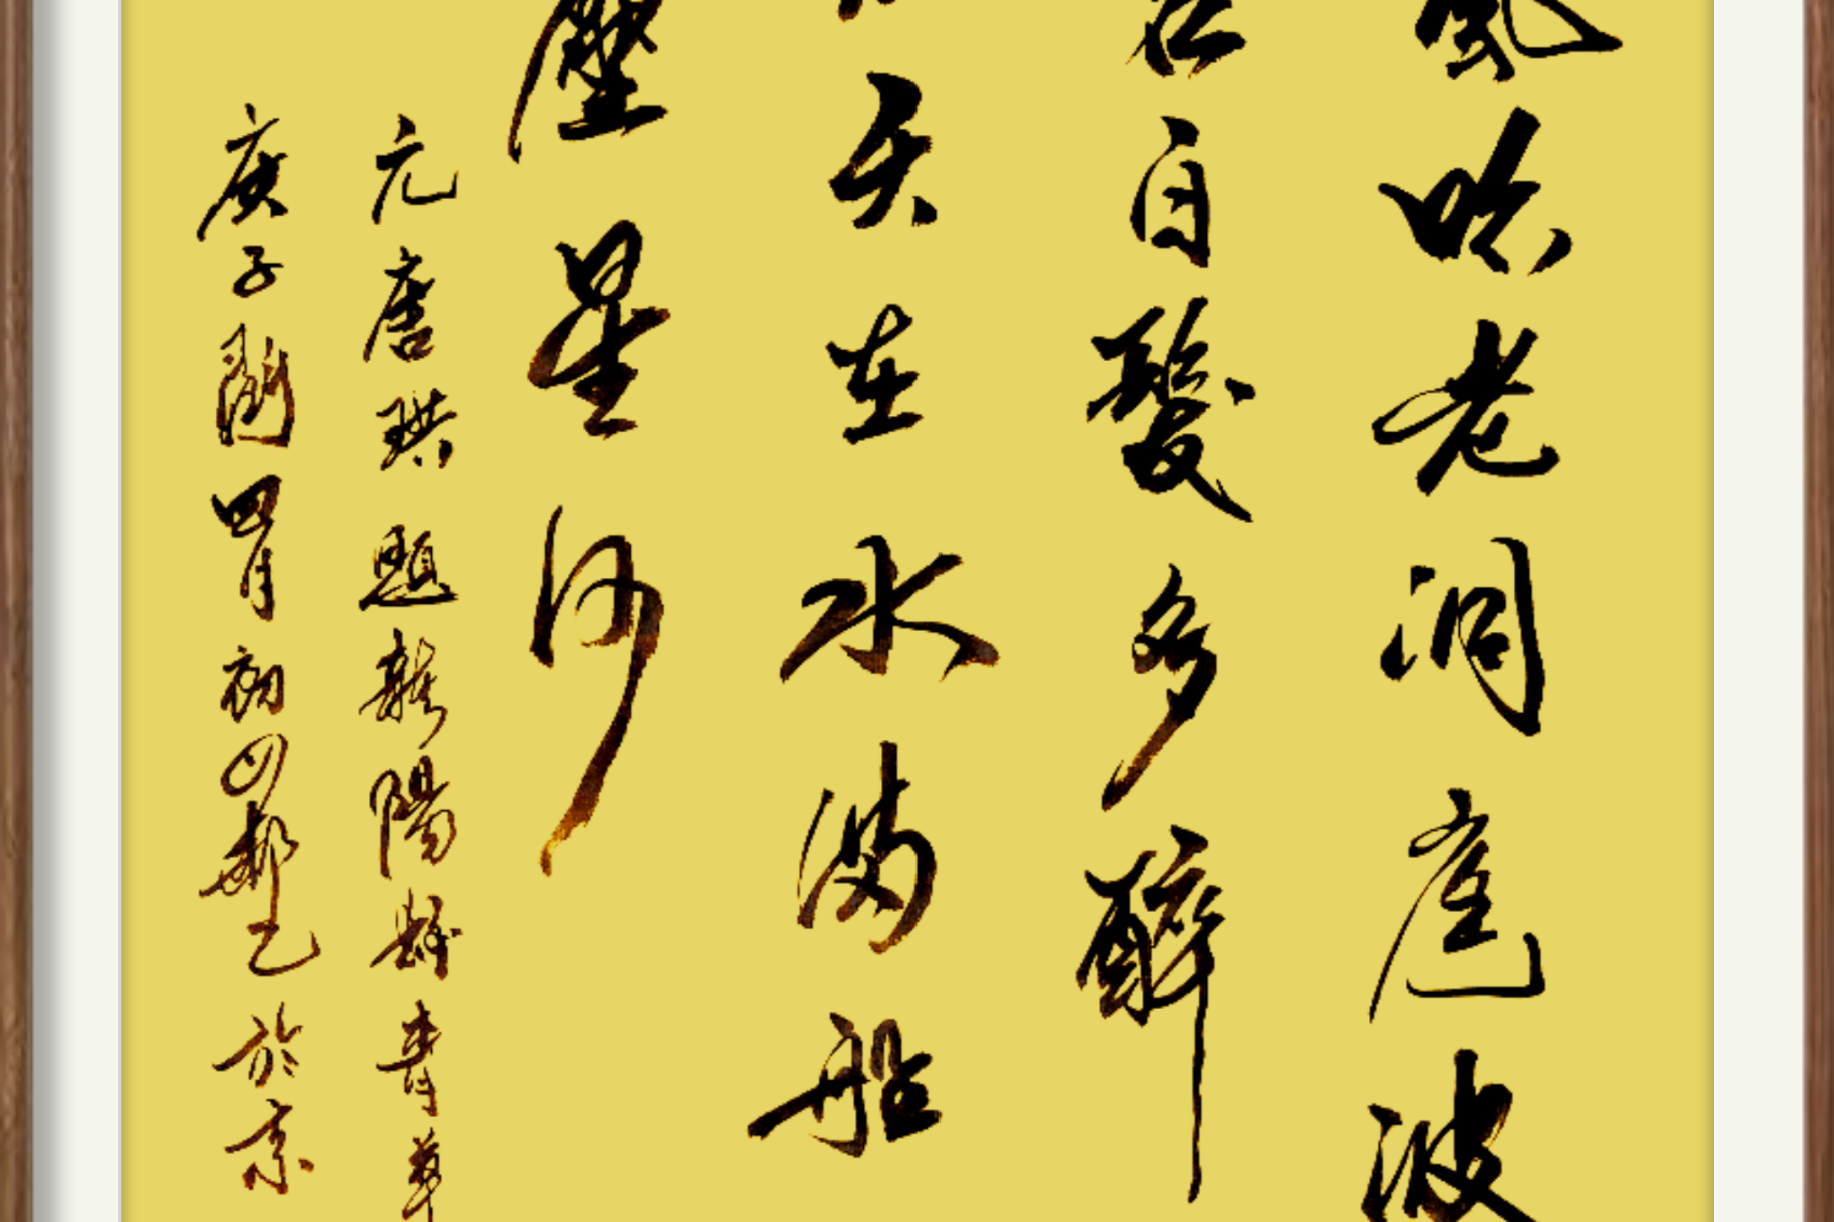 風吹老洞庭波
君白髮多醉
天在水滿船
壓星河
元唐珙題龍陽縣青草
庚子閏四月初四於京